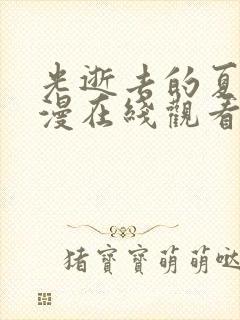 光逝去的夏
漫在綫觀看
猪寶寶萌萌噠